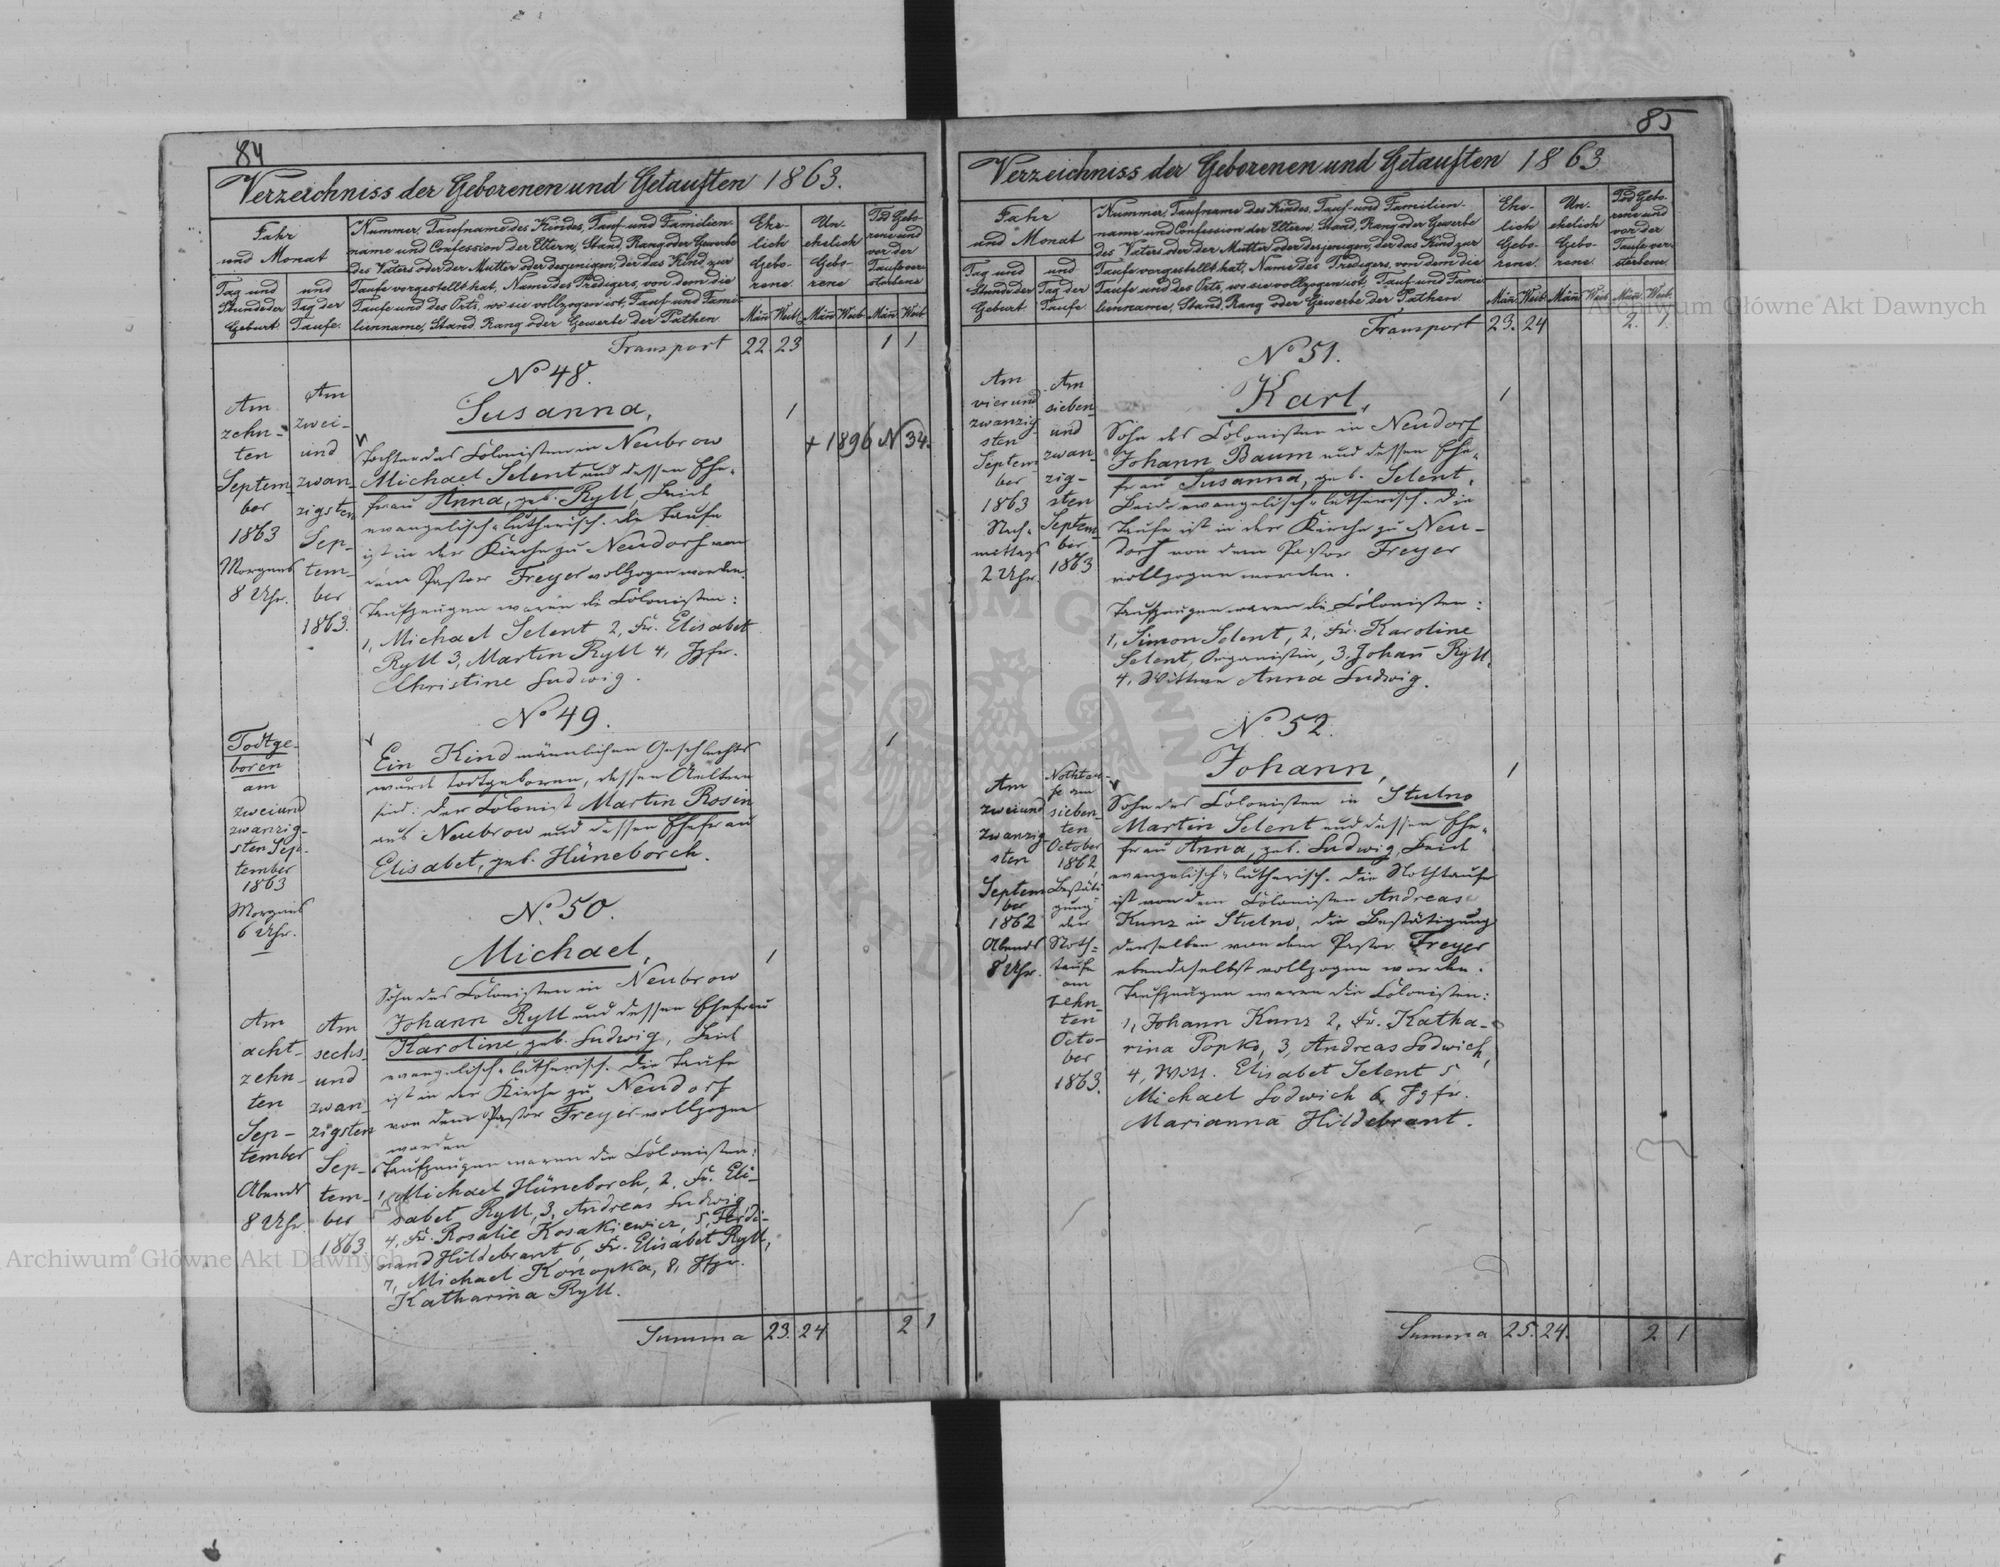 84
Verzeichniss der Geborenen und Getauften 1863.
Jahr
und Monat
Tag und
Stunde der
Geburt.
und
Tag der
Taufe.
Nummer, Taufname des Kindes, Tauf- und Familien-
name und Confession der Eltern, Stand, Rang oder Gewerbe
des Vaters oder der Mutter oder desjenigen, der das Kind zur
Taufe vorgestellt hat, Name des Predigers, von dem die
Taufe und des Orts, wo sie vollzogen ist, Tauf und Fami-
lienname, Stand, Rang oder Gewerbe der Pathen.
Ehe-
lich
Gebo-
rene.
Un-
ehelich
Gebo-
rene
Tod Gebo-
rene und
vor der
Taufe ver-
storbene
Män̄ Weib. Män̄ Weib. Män̄ Weib.
Transport 22 23 1 1
Am
zehn-
ten
Septem-
ber
1863
Morgens
8 Uhr.
Am
zwei-
und
zwan-
zigsten
Sep-
tem-
ber
1863.
No 48.
Susanna, 1
+ 1896 N 34.
Tochter des Colonisten in Neubrow
Michael Selent und dessen Ehe-
frau Anna, geb. Ryll, Beide
evangelisch-lutherisch. Die Taufe
ist in der Kirche zu Neudorf von
dem Pastor Freyer vollzogen worden.
Taufzeugen waren die Colonisten:
1, Michael Selent 2, Fr. Elisabet
Ryll 3, Martin Ryll 4, Jgfr.
Christine Ludwig.
Todtge-
boren
am
zweiund
zwanzig-
sten Sep-
tember
1863
Morgens
6 Uhr.
No 49.
Ein Kind männlichen Geschlechts 1
wurde todtgeboren, dessen Aeltern
sind: der Colonist Martin Rosin
aus Neubrow und dessen Ehefrau
Elisabet, geb. Hüneborch.
Am
acht-
zehn-
ten
Sep-
tember
Abends
8 Uhr.
Am
sechs
und
zwan-
zigsten
Sep-
tem-
ber
1863
No 50.
Michael, 1
Sohn des Colonisten in Neubrow
Johann Ryll und dessen Ehefrau
Karoline, geb. Ludwig, Beide
evangelisch-lutherisch. Die Taufe
ist in der Kirche zu Neudorf
von dem Pastor Freyer vollzogen
worden
Taufzeugen waren die Colonisten:
1, Michael Hüneborch, 2, Fr. Eli-
sabet Ryll, 3, Andreas Ludwig
4, Fr. Rosalie Kosakiewicz, 5, Ferdi-
nand Hildebrant 6, Fr. Elisabet Ryll,
7, Michael Konopka, 8, Jgfr.
Katharina Ryll.
Summa 23. 24 2 1
85
Verzeichniss der Geborenen und Getauften 1863
Jahr
und Monat
Tag und
Stunde der
Geburt
und
Tag der
Taufe
Nummer, Taufname des Kindes, Tauf- und Familien-
name und Confession der Eltern, Stand, Rang oder Gewerbe
des Vaters oder der Mutter oder desjenigen, der das Kind zur
Taufe vorgestellt hat, Name des Predigers, von dem die
Taufe und des Orts, wo sie vollzogen ist, Tauf und Fami-
lienname, Stand, Rang oder Gewerbe der Pathen.
Ehe-
lich
Gebo-
rene.
Un-
ehelich
Gebo-
rene.
Tod Gebo-
rene und
vor der
Taufe ver-
storbene.
Män̄ Weib. Män̄ Weib. Män̄ Weib.
Transport 23. 24 2. 1.
Am
vierund
zwanzig
sten
Septem
ber
1863
Nach-
mittags
2 Uhr.
Am
sieben-
und
zwan-
zig-
sten
Septem-
ber
1863
No 51.
Karl, 1
Sohn des Colonisten in Neudorf
Johann Baum und dessen Ehe-
frau Susanna, geb. Selent,
Beide evangelisch-lutherisch. Die
Taufe ist in der Kirche zu Neu-
dorf von dem Pastor Freyer
vollzogen worden.
Taufzeugen waren die Colonisten:
1, Simon Selent, 2, Fr. Karoline
Selent, Organistin, 3, Johan̄ Ryll,
4, Wittwe Anna Ludwig.
Am
zweiund
zwanzig
sten
Septem
ber
1862
Abends
8 Uhr.
Nothtau-
fe am
sieben-
ten
October
1862,
Bestäti-
gung
der
Noth-
taufe
am
zehn-
ten
Octo-
ber
1863.
No. 52.
Johann, 1
Sohn des Colonisten in Stulno
Martin Selent und dessen Ehe-
frau Anna, geb. Ludwig, Beide
evangelisch-lutherisch. Die Nothtaufe
ist von dem Colonisten Andreas
Kunz in Stulno, die Bestätigung
derselben von dem Pastor Freyer
ebendaselbst vollzogen worden.
Taufzeugen waren die Colonisten:
1, Johann Kunz 2, Fr. Katha-
rina Popko, 3, Andreas Lodwich,
4, Witt. Elisabet Selent 5,
Michael Lodwich 6, Jgfr.
Marianna Hildebrant.
Summa 25. 24. 2 1
Archiwum Główne Akt Dawnych
Archiwum Główne Akt Dawnych